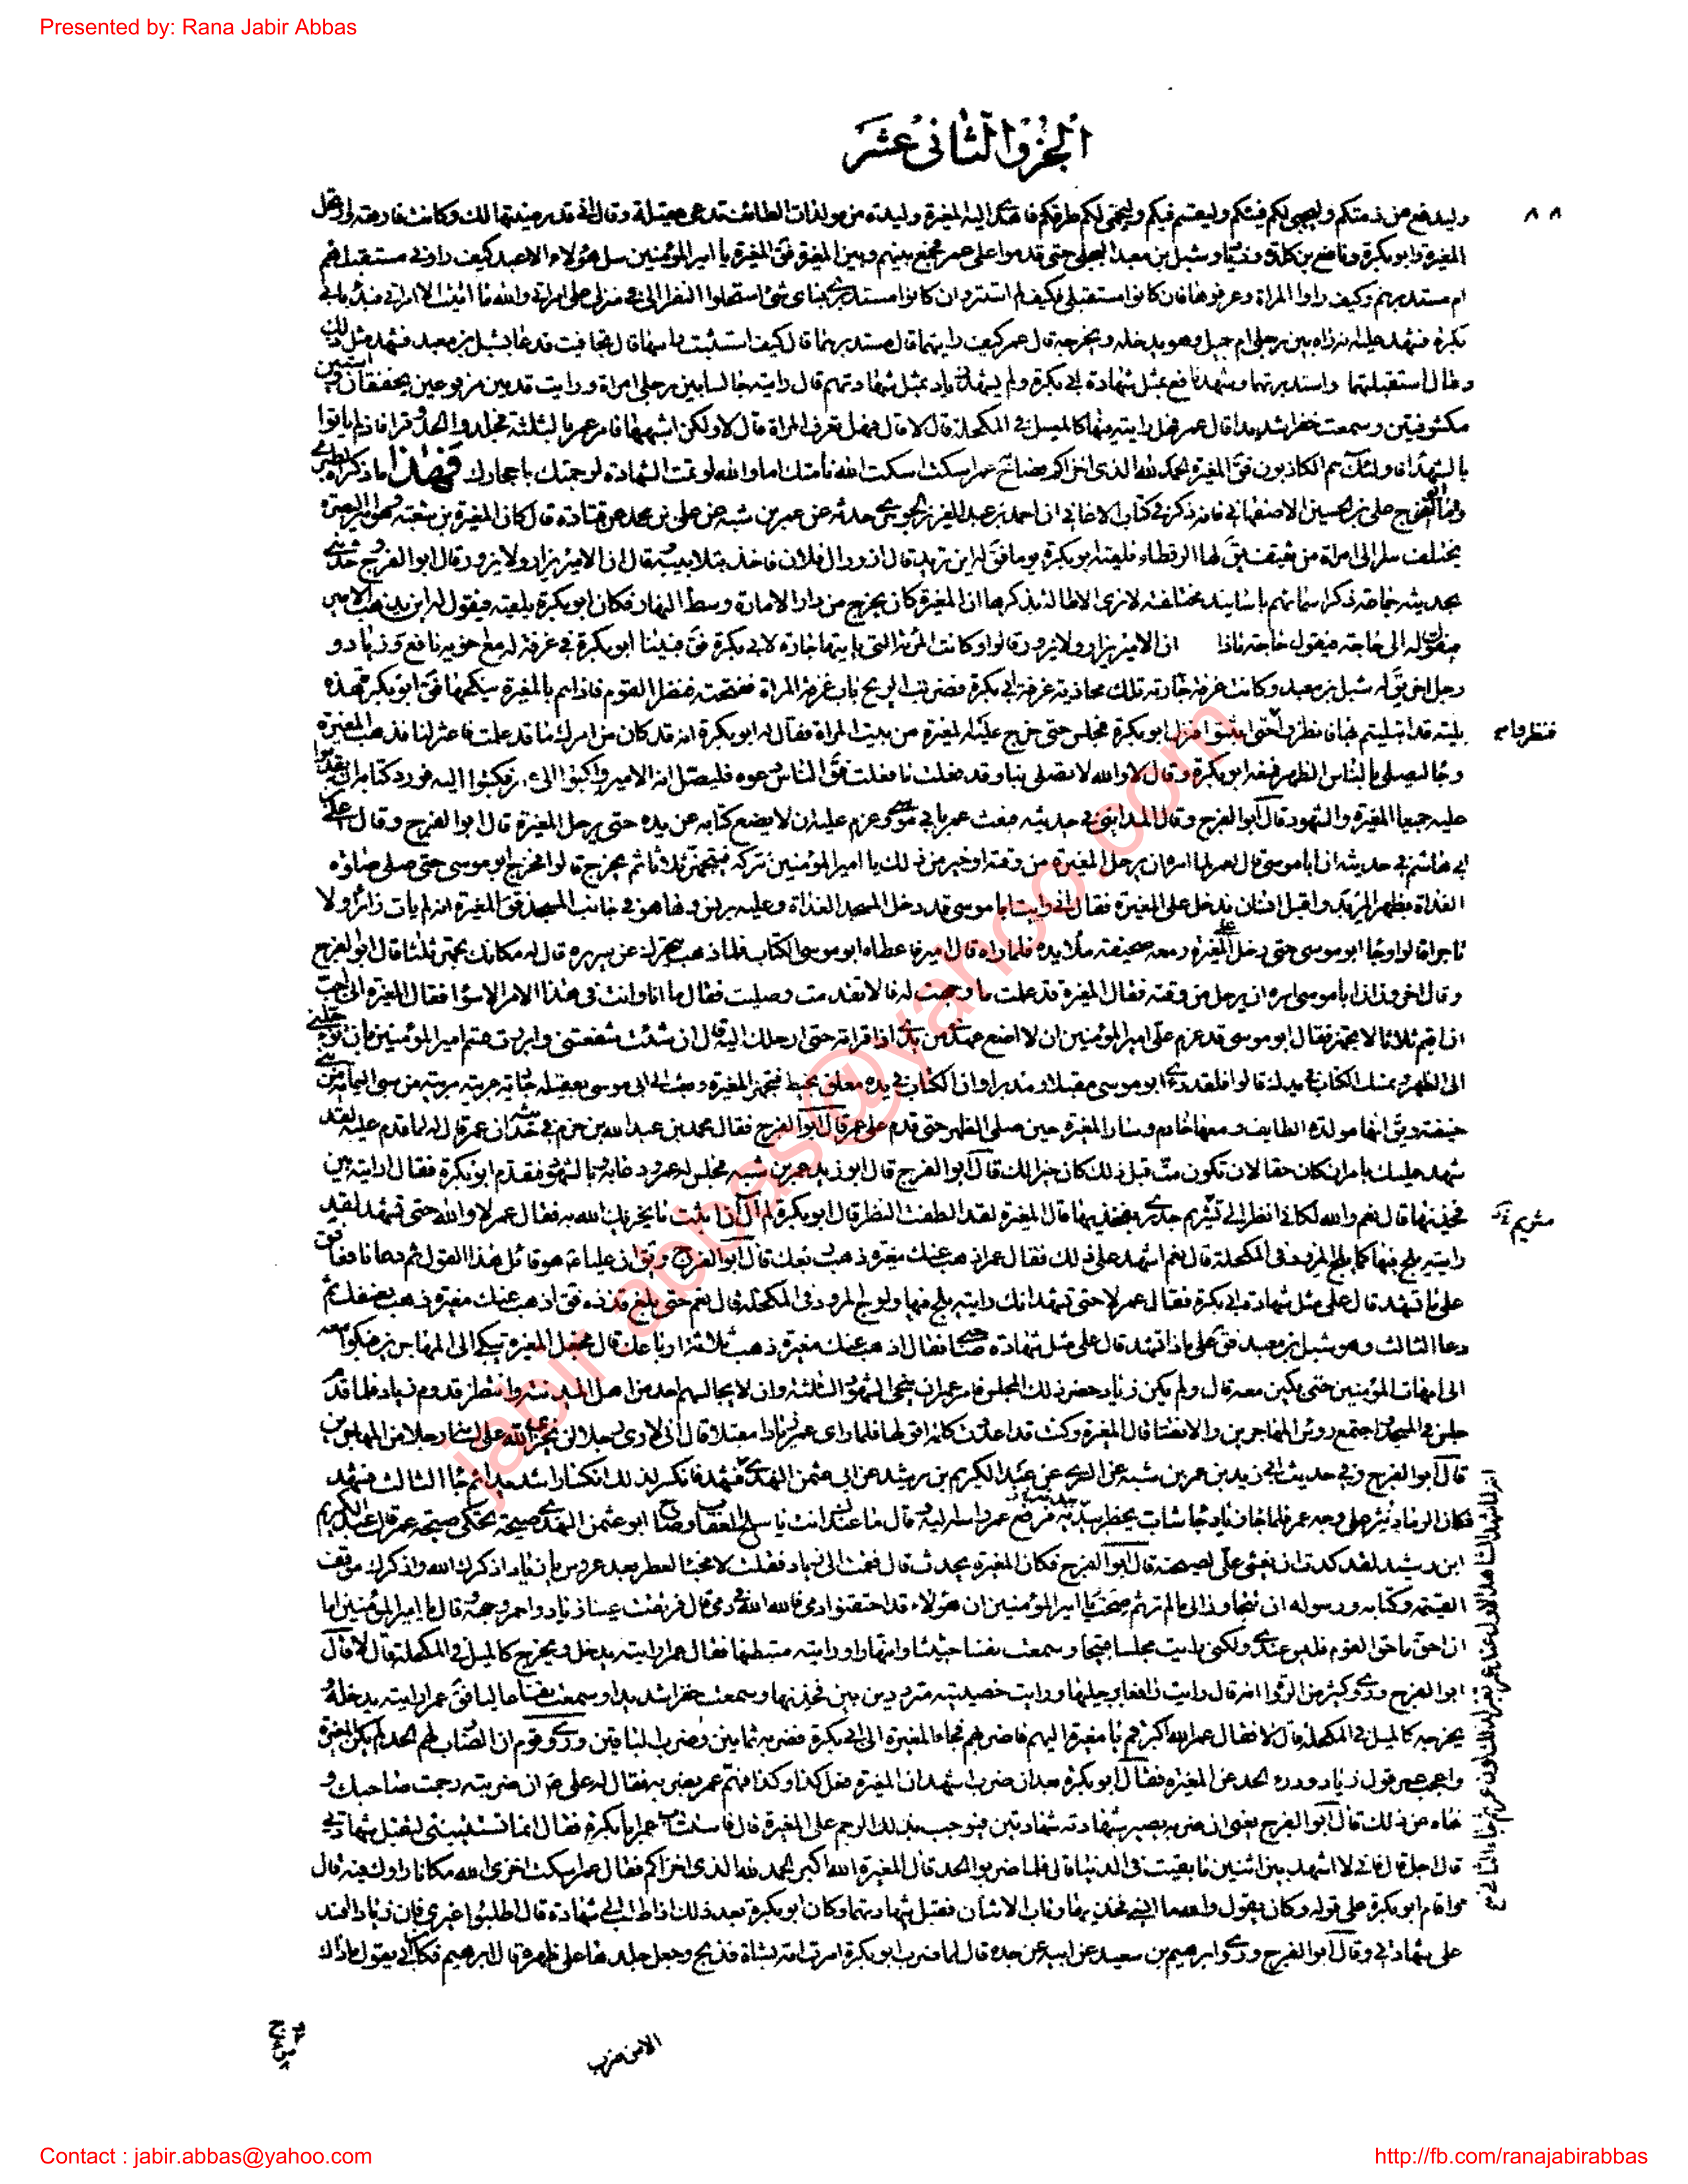 Presented by: Rana Jabir Abbas
الجزؤ الثانی عشر
٨٨
وليدفع عن ذمتكم وليجبى لكم فيئكم وليقسم فيكم وليحمى لكم طرقكم فاهدى اليه المغيرة وليدة من مولدات الطائف تدعى عقيلة وقال انى قد رضيتها لك وكانت فارهة وارتحل
المغيرة وابو بكرة ونافع بن كلدة وزياد وشبل بن معبد البجلى حتى قدموا على عمر فجمع بينهم وبين المغيرة فق المغيرة يا امير المؤمنين سل هؤلاء الاعبد كيف راونى مستقبلهم
ام مستدبرهم وكيف راوا المراة وعرفوها فان كانوا مستقبلى فكيف لم استتر وان كانوا مستدبرى فباى شئ استحلوا النظر الى فى منزلى على امراتى والله ما اتيت الا امراتى فبدأ بابى
بكرة فشهد عليه انه راه بين رجلى ام جميل وهو يدخله ويخرجه قال عمر كيف رايتهما قال مستدبرهما قال كيف استثبت راسها قال تجافيت فدعا بشبل بن معبد فشهد مثل ذلك
وقال استقبلتهما واستدبرتهما وشهد نافع بمثل شهادة ابى بكرة ولم يشهد زياد بمثل شهادتهم قال رايته جالسا بين رجلى امراة ورايت قدمين مرفوعين يخفقان واستين
مكشوفتين وسمعت حفزا شديدا قال عمر فهل رايته فيها كالميل فى المكحلة قال لا قال فهل تعرف المراة قال لا ولكن اشبهها فامر عمر بالثلثة فجلدوا الحد وقرا فاذ لم ياتوا
بالشهداء فاولئك هم الكاذبون فق المغيرة الحمد لله الذى اخزاكم فصاح عمر اسكت اسكت الله نامتك اما والله لو تمت الشهادة لرجمتك باحجارك فهذا ما ذكره الطبرى
واما ابو الفرج على بن الحسين الاصفهانى فانه ذكر فى كتاب الاغانى ان احمد بن عبد العزيز الجوهرى حدثه عن عمر بن شبه عن على بن محمد عن قتادة قال كان المغيرة بن شعبة وهو امير البصرة
يختلف سرا الى امراة من ثقيف يق لها الرقطاء فلقيه ابو بكرة يوما فق له اين تريد قال ازور ال فلان فاخذ بتلابيبه وقال ان الامير يزار ولا يزور وقال ابو الفرج وحدثنى
بحديثه جماعة ذكر اسماءهم باسانيد مختلفة لا نرى الاطالة بذكرها ان المغيرة كان يخرج من دار الامارة وسط النهار فكان ابو بكرة يلقيه فيقول له اين يذهب الامير
فيقول له الى حاجة فيقول حاجة ماذا ان الامير يزار ولا يزور قالوا وكانت المرئة التى ياتيها جارة لابى بكرة فق فبينا ابو بكرة فى غرفة له مع اخويه نافع وزياد و
رجل اخر يق له شبل بن معبد وكانت غرفة جارته تلك محاذية غرفة ابى بكرة فضربت الريح باب غرفة المراة ففتحته فنظر القوم فاذا هم بالمغيرة ينكحها فق ابو بكرة هذه
بلية قد ابتليتم بها فانظروا حتى اثبتوا فنزل ابو بكرة فجلس حتى خرج عليه المغيرة من بيت المراة فقال له ابو بكرة انه قد كان من امرك ما قد علمت فاعتزلنا فذهب المغيرة
وجا ليصلى بالناس الظهر فمنعه ابو بكرة وقال لا والله لا تصلى بنا وقد فعلت ما فعلت فق الناس دعوه فليصل انه الامير واكتبوا الى عمر فكتبوا اليه فورد كتابه ان يقدموا
عليه جميعا المغيرة والشهود قال ابو الفرج وقال المداينى فى حديثه فبعث عمر بابى موسى وعزم عليه ان لا يضع كتابه عن يده حتى يرحل المغيرة قال ابو الفرج وقال على بن
ابى هاشم فى حديثه ان ابا موسى قال لعمر لما امره ان يرحل المغيرة من وقته اوخير من ذلك يا امير المؤمنين نتركه فيتجهز ثلاثا ثم يخرج قالوا فخرج ابو موسى حتى صلى صلوة
الغداة بظهر المربد واقبل انسان فدخل على المغيرة فقال انى رايت ابا موسى قد دخل المسجد الغداة وعليه برنس وها هو فى جانب المسجد فق المغيرة انه لم يات زائرا ولا
تاجرا قالوا وجا ابو موسى حتى دخل على المغيرة ومعه صحيفة ملأ يده فلما راه قال امير فاعطاه ابو موسى الكتاب فلما ذهب يتحرك عن سريره قال له مكانك تجهز ثلثا قال ابو الفرج
وقال اخرون ان ابا موسى امره ان يرحل من وقته فقال المغيرة قد علمت ما وجهت له فالا تقدمت وصليت فقال ما انا وانت فى هذا الامر الا سواء فقال المغيرة انى احب
ان اقيم ثلاثا لاتجهز فقال ابو موسى قد عزم على امير المؤمنين ان لا اضع عهدى من يدى اذا قراته حتى ارحلك اليه قال ان شئت شفعتنى وابررت قسم امير المؤمنين بان تؤجلنى
الى الظهر وتمسك الكتاب فى يدك قالوا فلقد رئى ابو موسى مقبلا ومدبرا وان الكتاب فى يده معلق بخيط فتجهز المغيرة وبعث الى ابى موسى بعقيلة جارية عربية من سبى اليمامة من بنى
حنيفة ويق انها مولدة الطايف ومعها خادم وسار المغيرة حين صلى الظهر حتى قدم على عمر قال ابو الفرج فقال محمد بن عبد الله بن حزم فى حديثه ان عمر قال له لما قدم عليه لقد
شهد عليك بامر ان كان حقا لان تكون مت قبل ذلك كان خيرا لك قال ابو الفرج قال ابو زيد عمر بن شبه فجلس له عمر ودعا به وبالشهود فتقدم ابو بكرة فقال ارايته بين
فخذيها قال نعم والله لكانى انظر الى تشريم جدرى بفخذيها قال المغيرة لقد الطفت النظر قال ابو بكرة لم ال ان اثبت ما يخزيك الله به فقال عمر لا والله حتى تشهد لقد
رايته يلج فيها كما يلج المرود فى المكحلة قال نعم اشهد على ذلك فقال عمر اذهب عنك مغيرة ذهب ربعك قال ابو الفرج ويق ان عليا ع هو قائل هذا القول ثم دعا نافعا فق
على ما تشهد قال على مثل شهادة ابى بكرة فقال عمر لا حتى تشهد انك رايته يلج فيها ولوج المرود فى المكحلة قال نعم حتى بلغ قذذه فق اذهب عنك مغيرة ذهب نصفك ثم
دعا الثالث وهو شبل بن معبد فق على ماذا تشهد قال على مثل شهادة صاحبى فقال اذهب عنك مغيرة ذهب ثلاثة ارباعك قال فجعل المغيرة يبكى الى المهاجرين فبكوا معه
الى امهات المؤمنين حتى بكين معه قال ولم يكن زياد حضر ذلك المجلس فامر عمر ان ينحى الشهود الثلثة وان لا يجالسهم احد من اهل المدينة وانتظر قدوم زياد فلما قدم
جلس فى المسجد واجتمع رؤس المهاجرين والانصار قال المغيرة وكنت قد اعددت كلمة اقولها فلما راى عمر زيادا مقبلا قال انى لارى رجلا لن يخزى الله على لسانه رجلا من المهاجرين
قال ابو الفرج وفى حديث ابى زيد بن عمر بن شبه عن السرى عن عبد الكريم بن رشيد عن ابى عثمن النهدى
فكان الرماد نثر على وجه عمر فلما جا زياد جا شاب يخطر بيديه فرفع عمر راسه اليه قال ما عندك انت يا سلح العقاب وصاح ابو عثمن النهدى صيحة تحكى صيحة عمر قال عبد الكريم
ابن رشيد لقد كدت ان يغشى على لصيحته قال ابو الفرج فكان المغيرة يحدث قال فقمت الى زياد فقلت لا مخبا لعطر بعد عروس يا زياد اذكرك الله واذكرك موقف
القيمة وكتابه ورسوله ان تتجاوز الى ما لم تر ثم صحت يا امير المؤمنين ان هؤلاء قد احتقنوا دمى فالله الله فى دمى قال فترنقت عينا زياد واحمر وجهه قال يا امير المؤمنين اما
ان احق ما حق القوم فليس عندى ولكنى رايت مجلسا قبيحا وسمعت نفسا حثيثا وانتهارا ورايته متبطنها فقال عمر ارايته يدخل ويخرج كالميل فى المكحلة قال لا قال
ابو الفرج وروى كثير من الرواة انه قال رايته رافعا برجليها ورايت خصيتيه مترددين بين فخذيها وسمعت حفزا شديدا وسمعت نفسا عاليا فق عمر ارايته يدخله و
يخرجه كالميل فى المكحلة قال لا فقال عمر الله اكبر قم يا مغيرة اليهم فاضربهم فجا المغيرة الى ابى بكرة فضربه ثمانين وضرب الباقين وروى قوم ان الضارب لهم الحد لم يكن المغيرة
واعجب عمر قول زياد ودرء الحد عن المغيرة فقال ابو بكرة بعد ان ضرب اشهد ان المغيرة فعل كذا وكذا فهم عمر بضربه فقال له على ع ان ضربته رجمت صاحبك و
نهاه عن ذلك قال ابو الفرج يعنى ان ضربه يصير شهادته شهادتين فيوجب بذلك الرجم على المغيرة قال فاستتاب عمر ابا بكرة فقال انما تستتيبنى لتقبل شهادتى
قال اجل قال فانى لا اشهد بين اثنين ما بقيت فى الدنيا قال فلما ضربوا الحد قال المغيرة الله اكبر الحمد لله الذى اخزاكم فقال عمر اسكت اخزى الله مكانا راوك فيه قال
واقام ابو بكرة على قوله وكان يقول والله ما انسى فخذيها وتاب الاثنان فقبل شهادتهما وكان ابو بكرة بعد ذلك اذا طلب الى شهادة قال اطلبوا غيرى فان زيادا افسد
على شهادتى وقال ابو الفرج وروى ابراهيم بن سعيد عن ابيه عن جده قال لما ضرب ابو بكرة امرت امه بشاة فذبحت وجعل جلدها على ظهره قال ابرهيم فكان ابى يقول ما ذاك
الا من ضرب
jabir.abbas@yahoo.com
Contact : jabir.abbas@yahoo.com
http://fb.com/ranajabirabbas